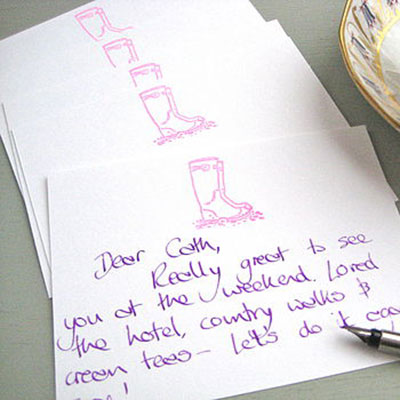 Dear Cath,
Really great to see
you at the weekend. Loved
the hotel, country walks &
cream teas – let's do it